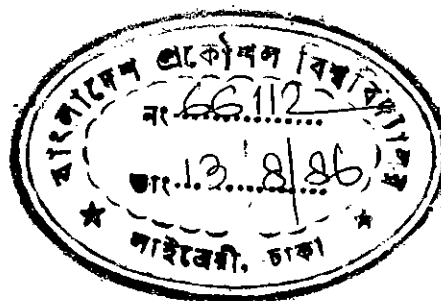 বাংলাদেশ প্রকৌশল বিশ্ববিদ্যালয়
নং 66112
তাং 13.8.86
লাইব্রেরী, ঢাকা